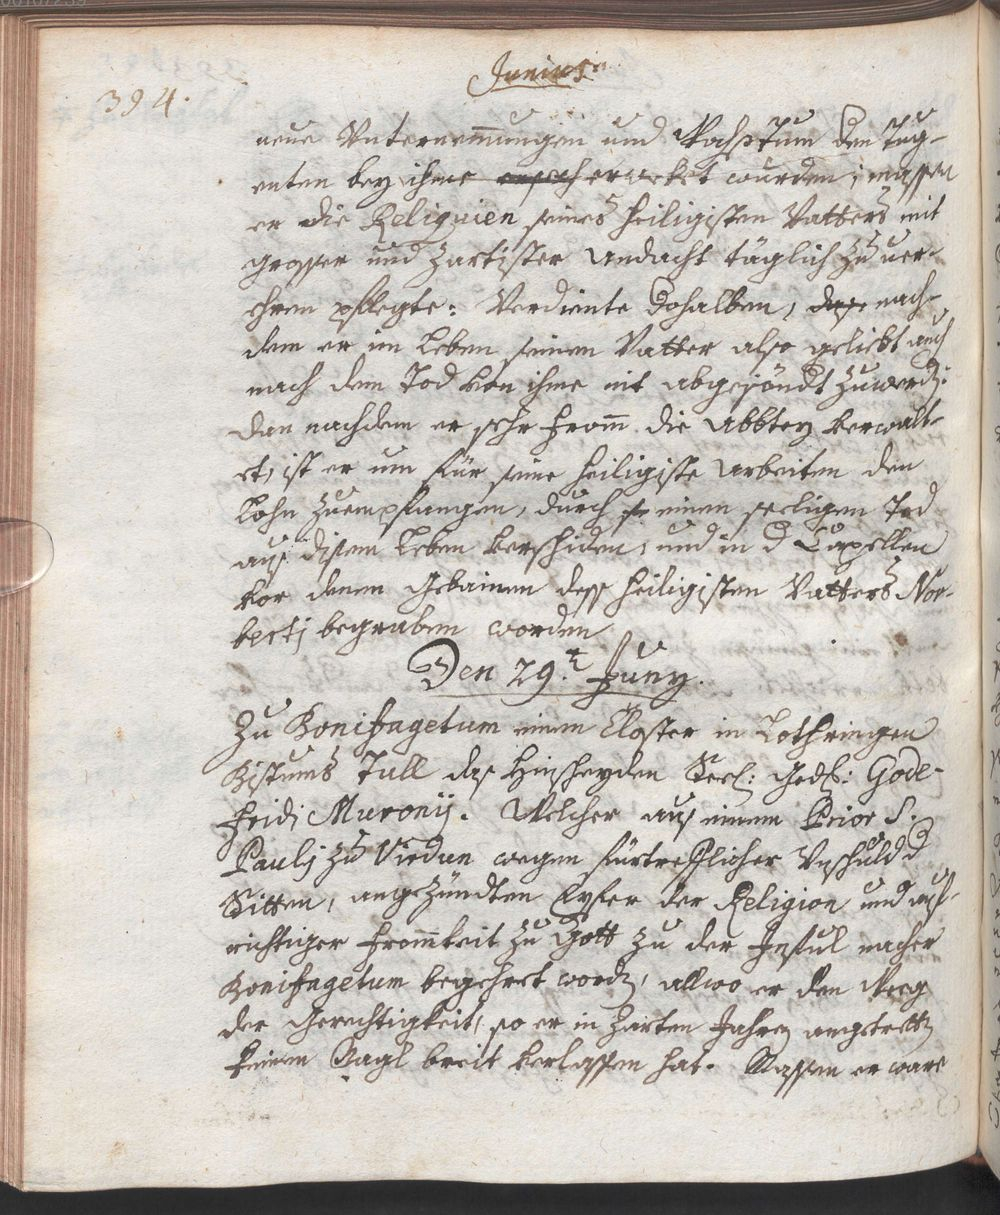 Junius.
394.
neue Unternemungen und Wachstum den Tug-
enten bey ihme erwekt wurden; massen
er die Reliquien seines heiligisten Vatters mit
grosser und zartister Andacht täglich zu ver-
ehren pflegte: Verdiente dohalben, nach-
dem er im Leben seinen Vatter also geliebt auch
nach dem Tod von ihme nit abgesöndt zuwerdn:
dan nachdem er sehr from die Abbtey verwalt-
et, ist er um für seine heiligiste Arbeiten den
Lohn zuempfangen, durch einen seeligen Tod
aus disem Leben verschiden, und in d Capellen
vor denen Gebainen dess heiligisten Vatters Nor-
bertj begraben worden
Den 29.t Juny.
Zu Bonifagetum einem Closter in Lothringen
Bistums Tull das Hinscheyden Seel: Ged: Gode-
fridi Muronij. Welcher aus einem Prior S.
Paulj zu Virdun wegen fürtrefflicher Unschuld d
Sitten, angezündten Eyfer der Religion und auf-
richtiger Fromkeit zu Gott zu der Inful nacher
Bonifagetum begehret wordn, allwo er den Weeg
der Gerechtigkeit, so er in zarten Jahren angetrettn
keinen Nagl breit verlassen hat. Massen er ware